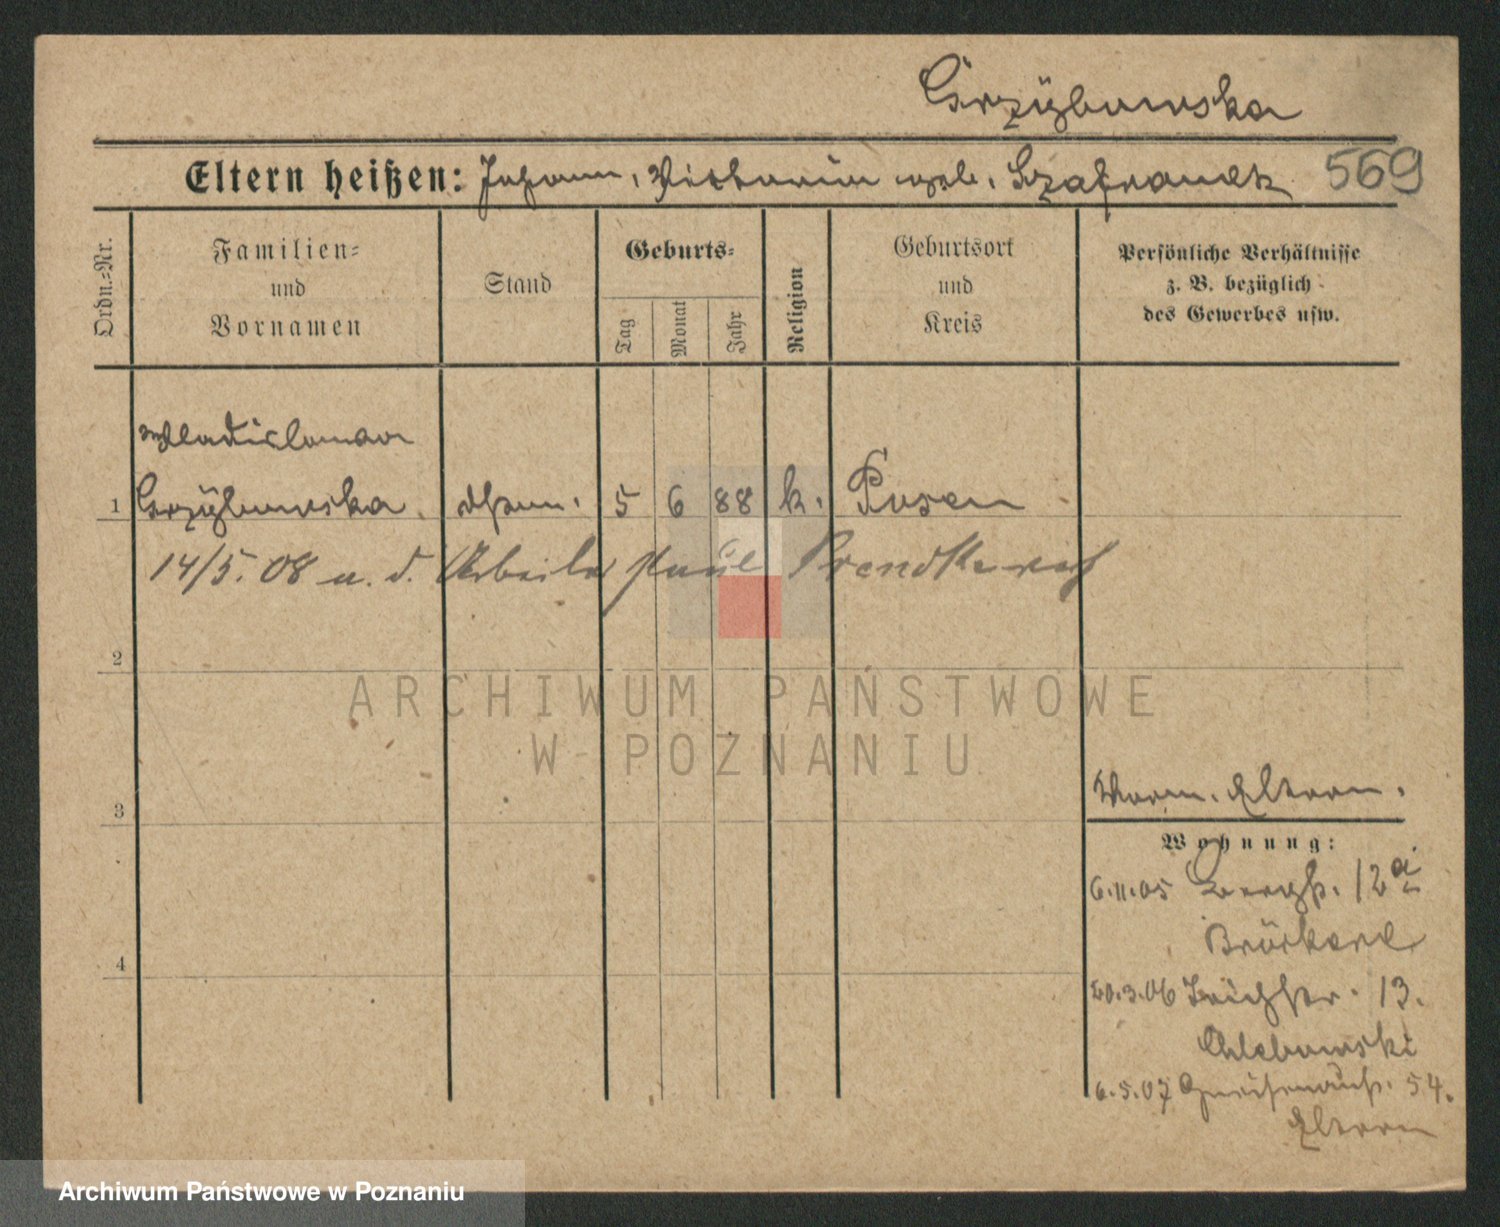 Grzÿbowska
Eltern heißen: Johann, Victoria geb. Szafranek 569
Ordn.=Nr.
Familien=
und
Vornamen
Stand
Geburts=
Tag
Monat
Jahr
Religion
Geburtsort
und
Kreis
Persönliche Verhältnisse
z. B. bezüglich
des Gewerbes usw.
Wladislawa
1 Grzÿbowska. 5 6 88 k. Posen
14/5. 08 u. d. Arbeiter Paul
2
ARCHIWUM PAŃSTWOWE
W POZNANIU
3
Eltern.
Wohnung:
6.11.05 Bergstr. 12a
4
20.3.06 13.
Chlebowski
6.5.07 Gneisenaustr. 54.
Eltern
Archiwum Państwowe w Poznaniu